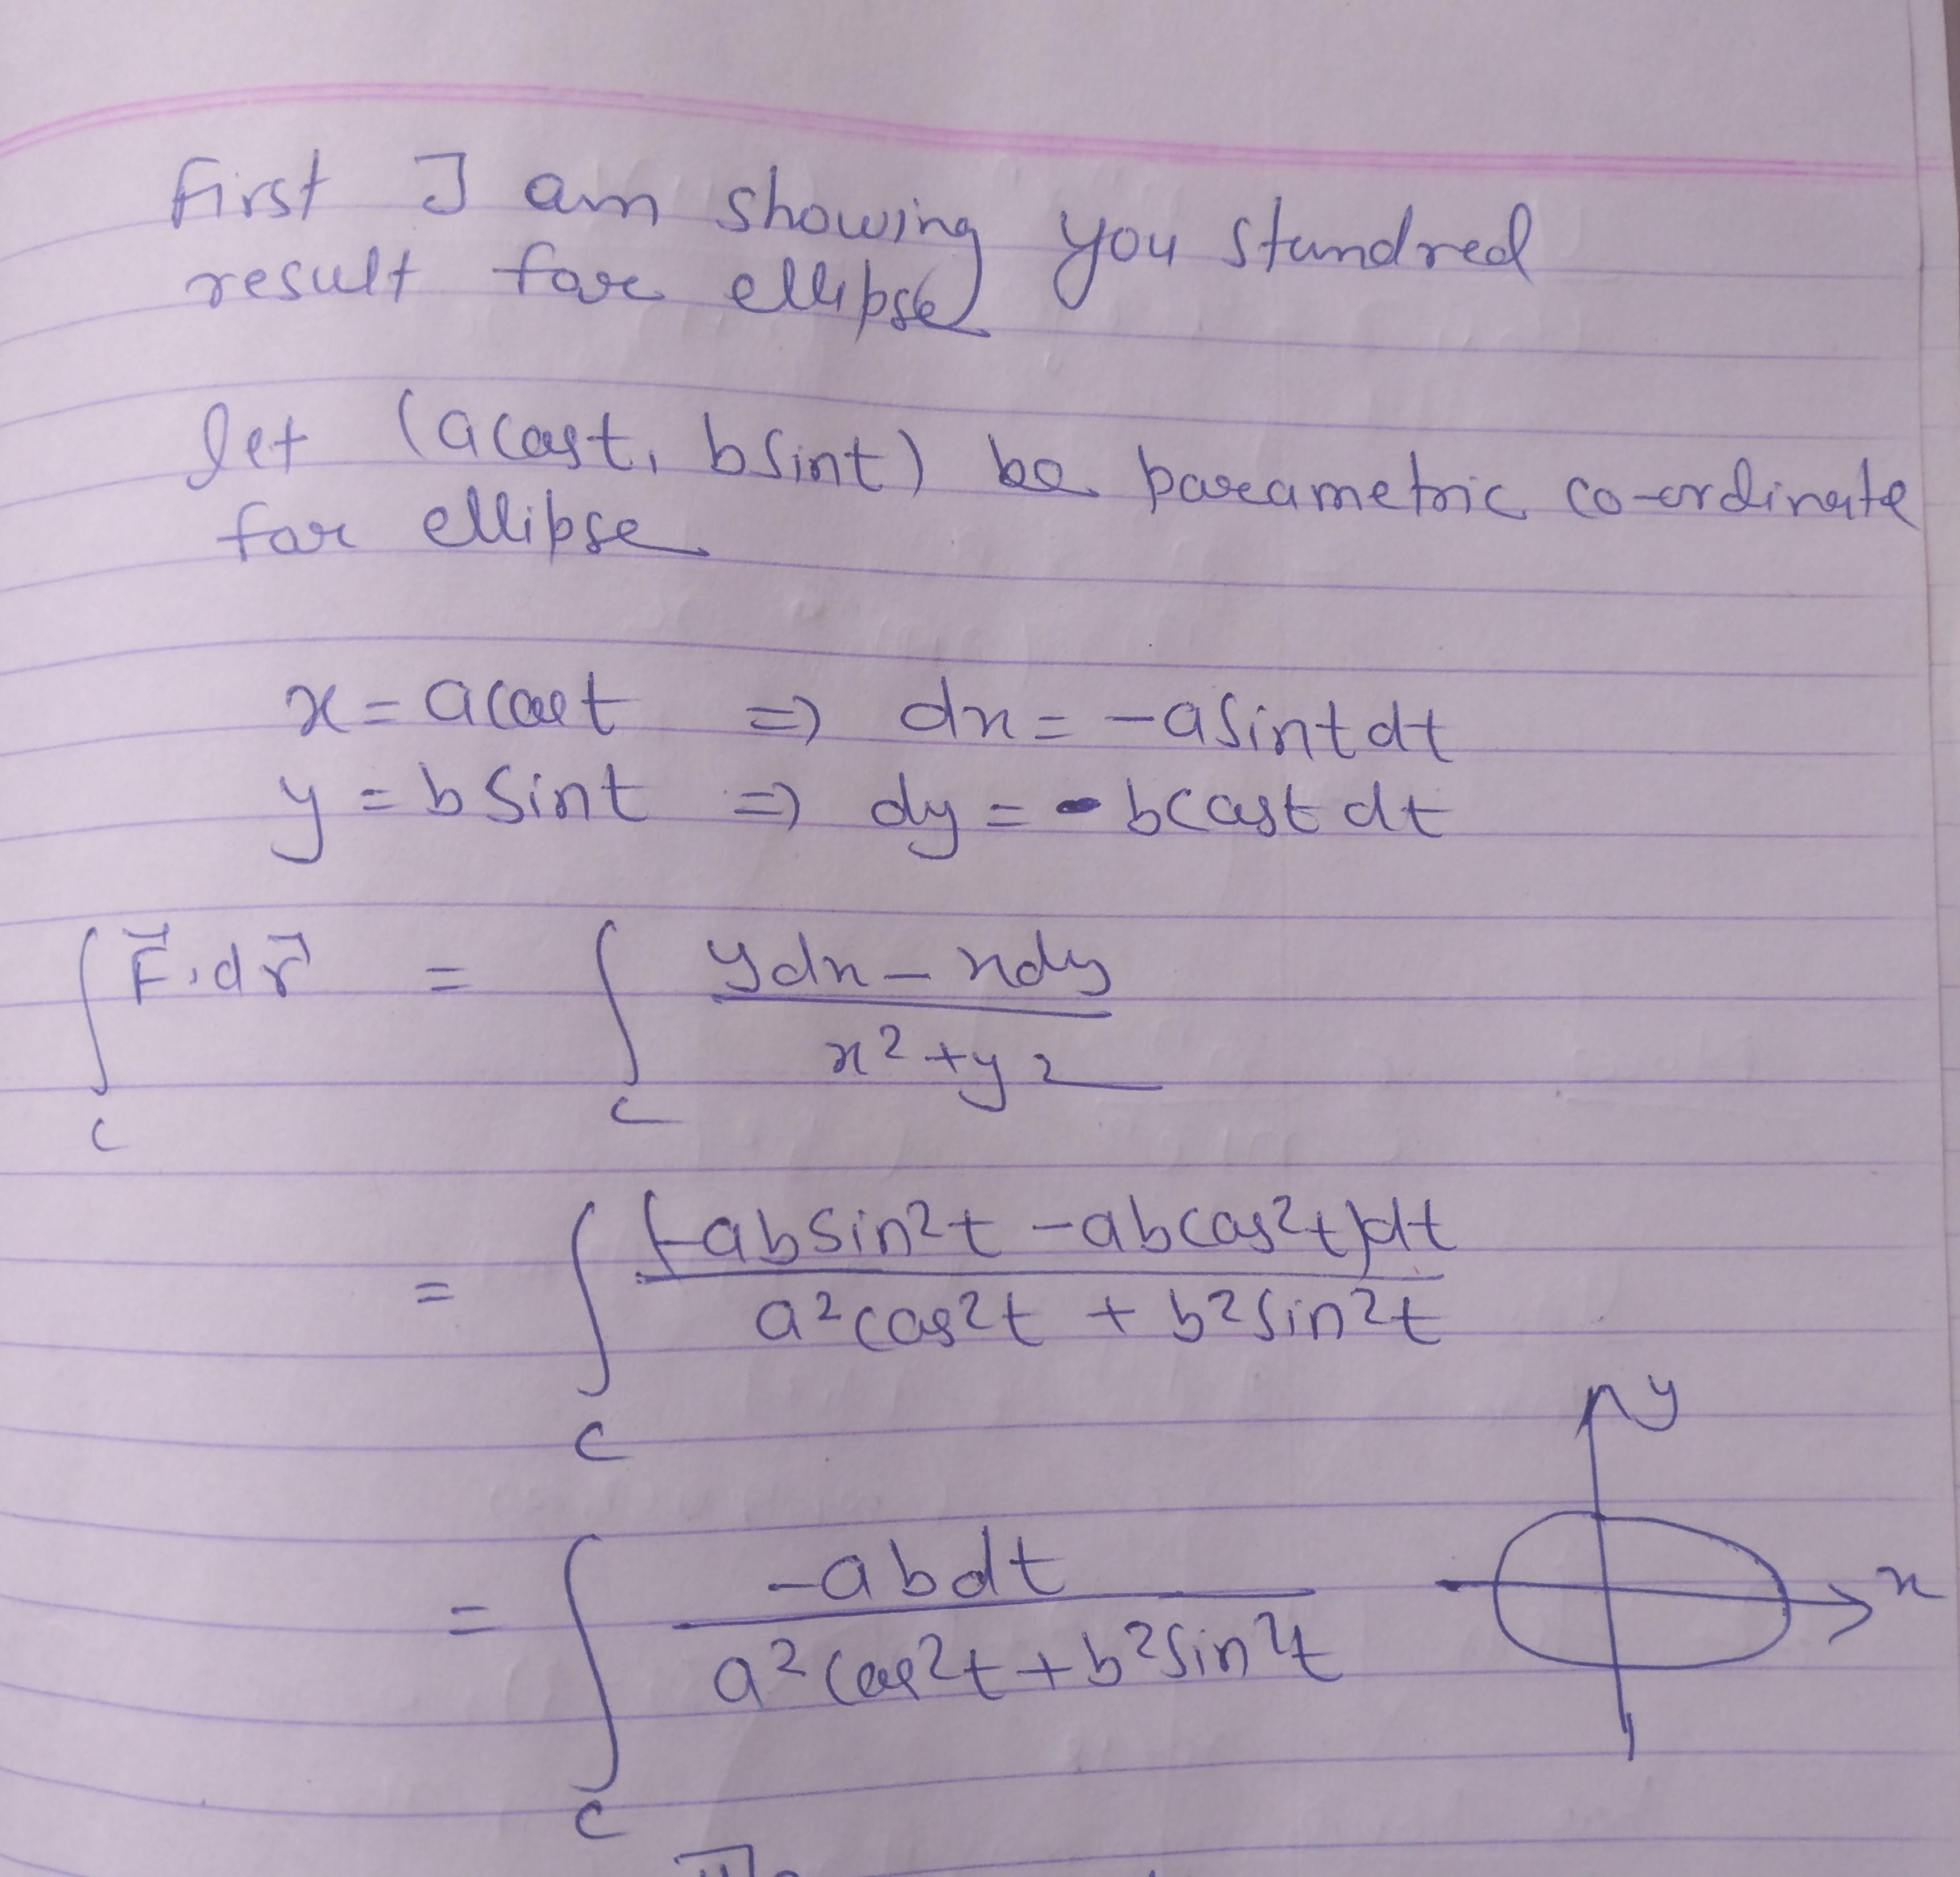 first I am showing you standred
result for ellipse
let (acost, bsint) be parametric co-ordinate
for ellipse
x = acost ⇒ dx = -asintdt
y = bsint ⇒ dy = bcost dt
∫_C F⃗.dr⃗ = ∫_C (ydx - xdy) / (x² + y²)
= ∫_C (-absin²t - abcos²t)dt / (a²cos²t + b²sin²t)
y
= ∫_C -abdt / (a²cos²t + b²sin²t)
x